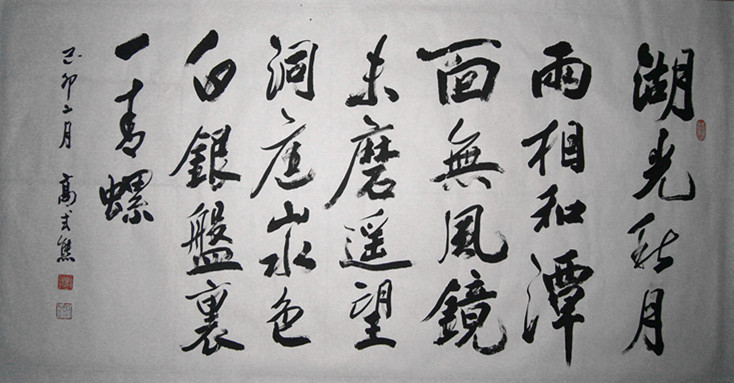 湖光秋月
兩相和潭
面無風鏡
未磨遥望
洞庭山水色
白銀盤裏
一青螺
己卯二月 高式熊